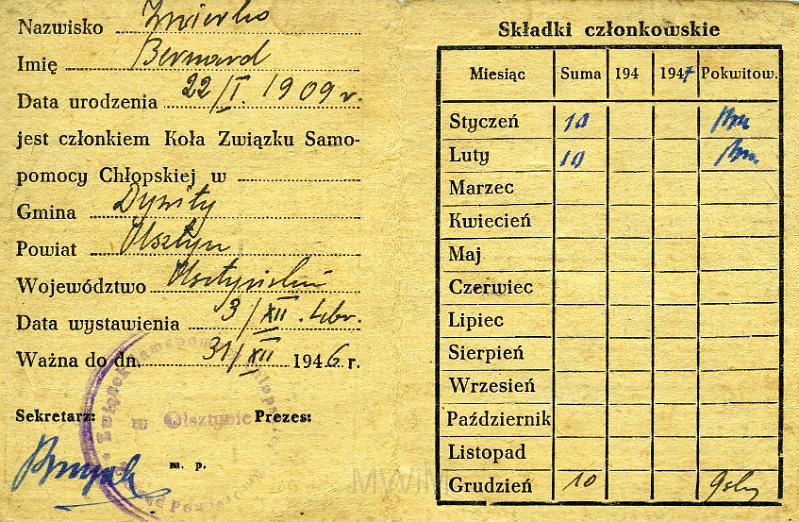 Nazwisko
Imię Bernard
Data urodzenia 22/I. 1909 r.
jest członkiem Koła Związku Samo-
pomocy Chłopskiej w
Gmina Dywity
Powiat Olsztyn
Województwo
Data wystawienia 3/XII.
Ważna do dn. 31/XII 1946 r.
Sekretarz: Prezes:
m. p.
w Olsztynie
Składki członkowskie
Miesiąc Suma 194 1947 Pokwitow.
Styczeń 10
Luty 10
Marzec
Kwiecień
Maj
Czerwiec
Lipiec
Sierpień
Wrzesień
Październik
Listopad
Grudzień 10
MWiM